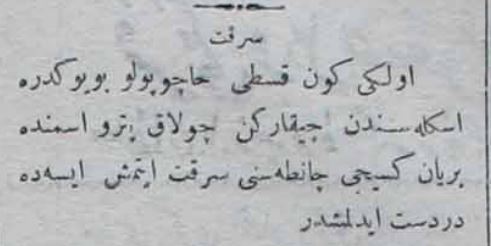 سرقت
اولكی كون قسطی حاچوپولو بویوكدره
اسكله‌سندن چیقاركن چولاق پترو اسمنده
بریان كسیجی چانطه‌سنی سرقت ایتمش ایسه‌ده
دردست ایدلمشدر